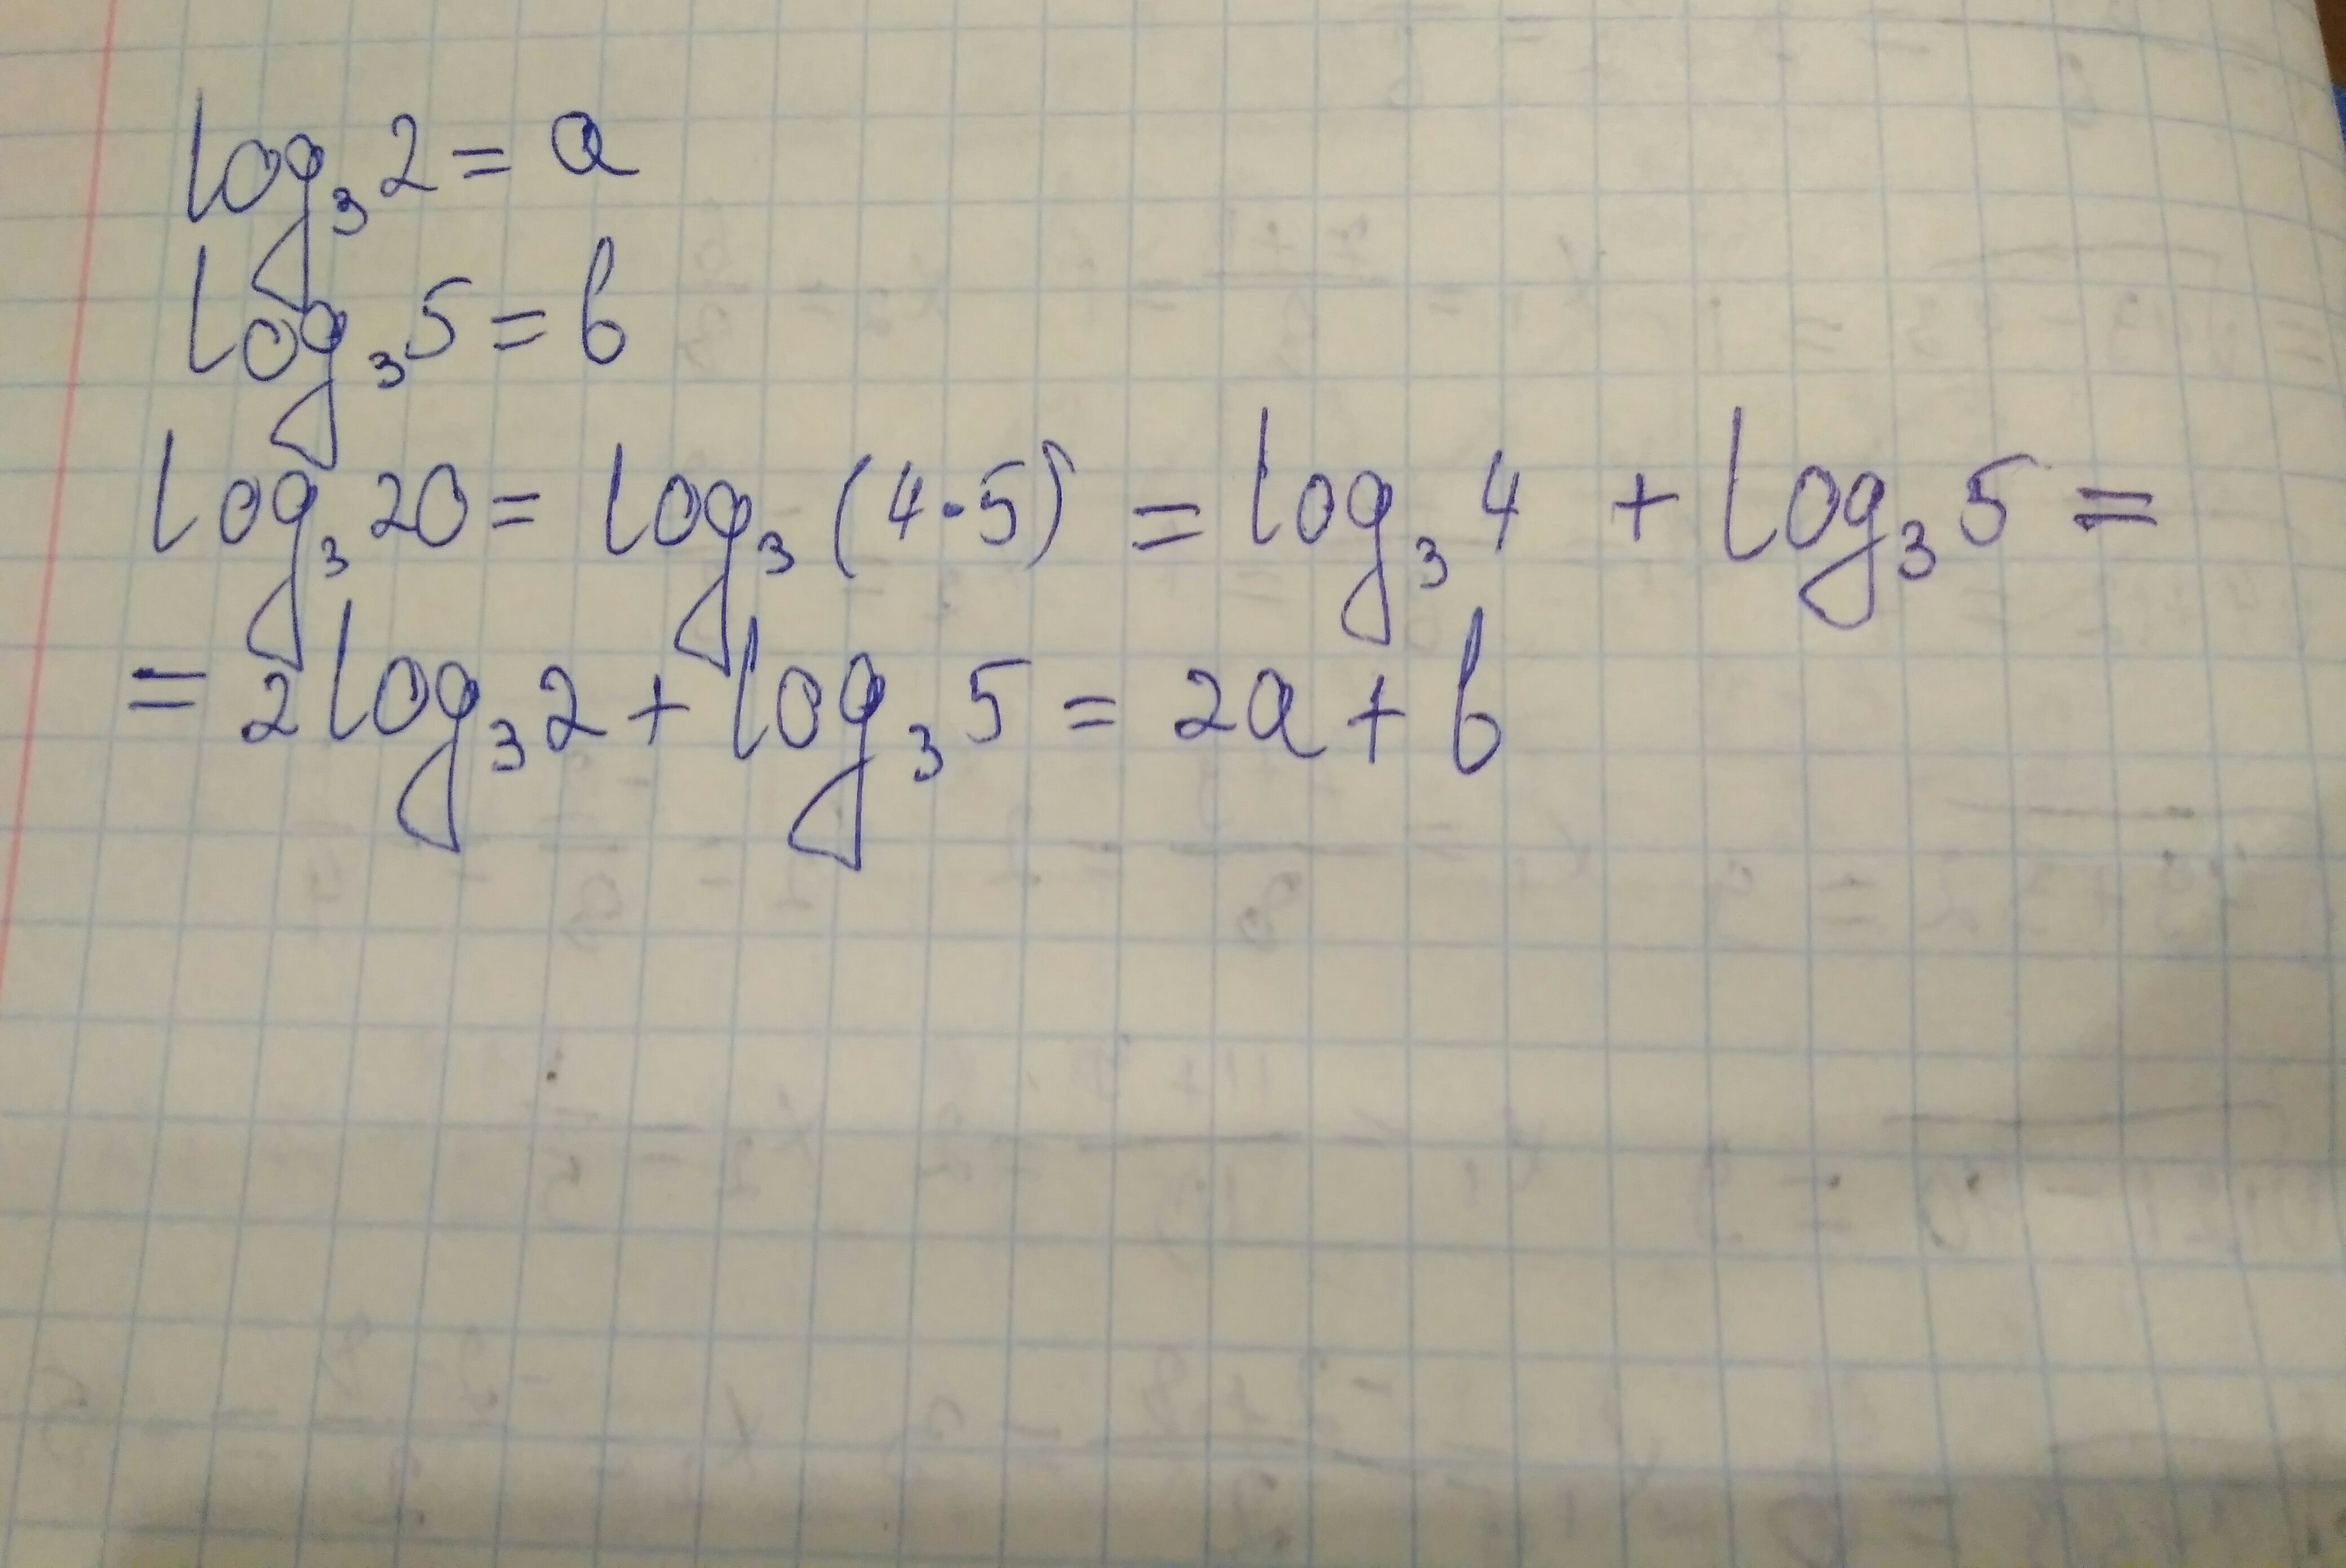 log₃2 = a
log₃5 = b
log₃20 = log₃(4·5) = log₃4 + log₃5 =
= 2log₃2 + log₃5 = 2a + b